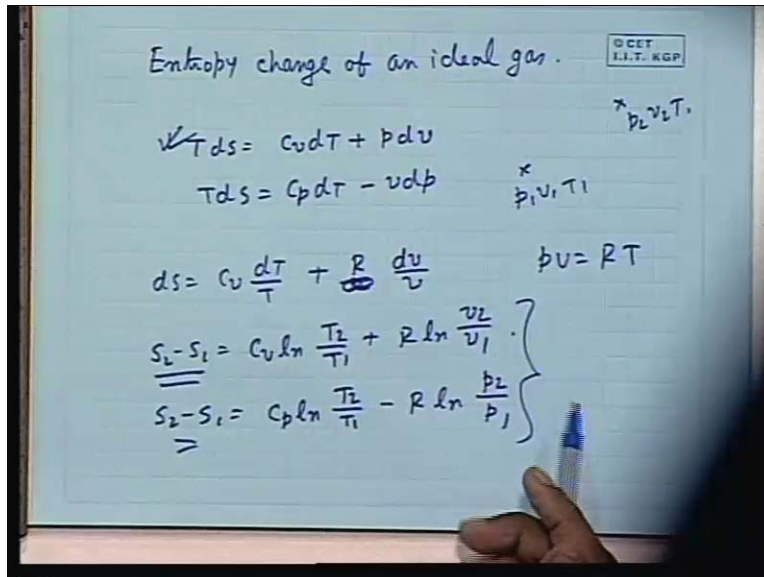 Entropy change of an ideal gas.
© CET
I.I.T. KGP
Tds = CvdT + pdv
Tds = CpdT - vdp
x p2 v2 T
x
p1 v1 T1
ds = Cv dT/T + R dv/v
pv = RT
S2-S1 = Cv ln T2/T1 + R ln v2/v1 .
S2-S1 = Cp ln T2/T1 - R ln p2/p1